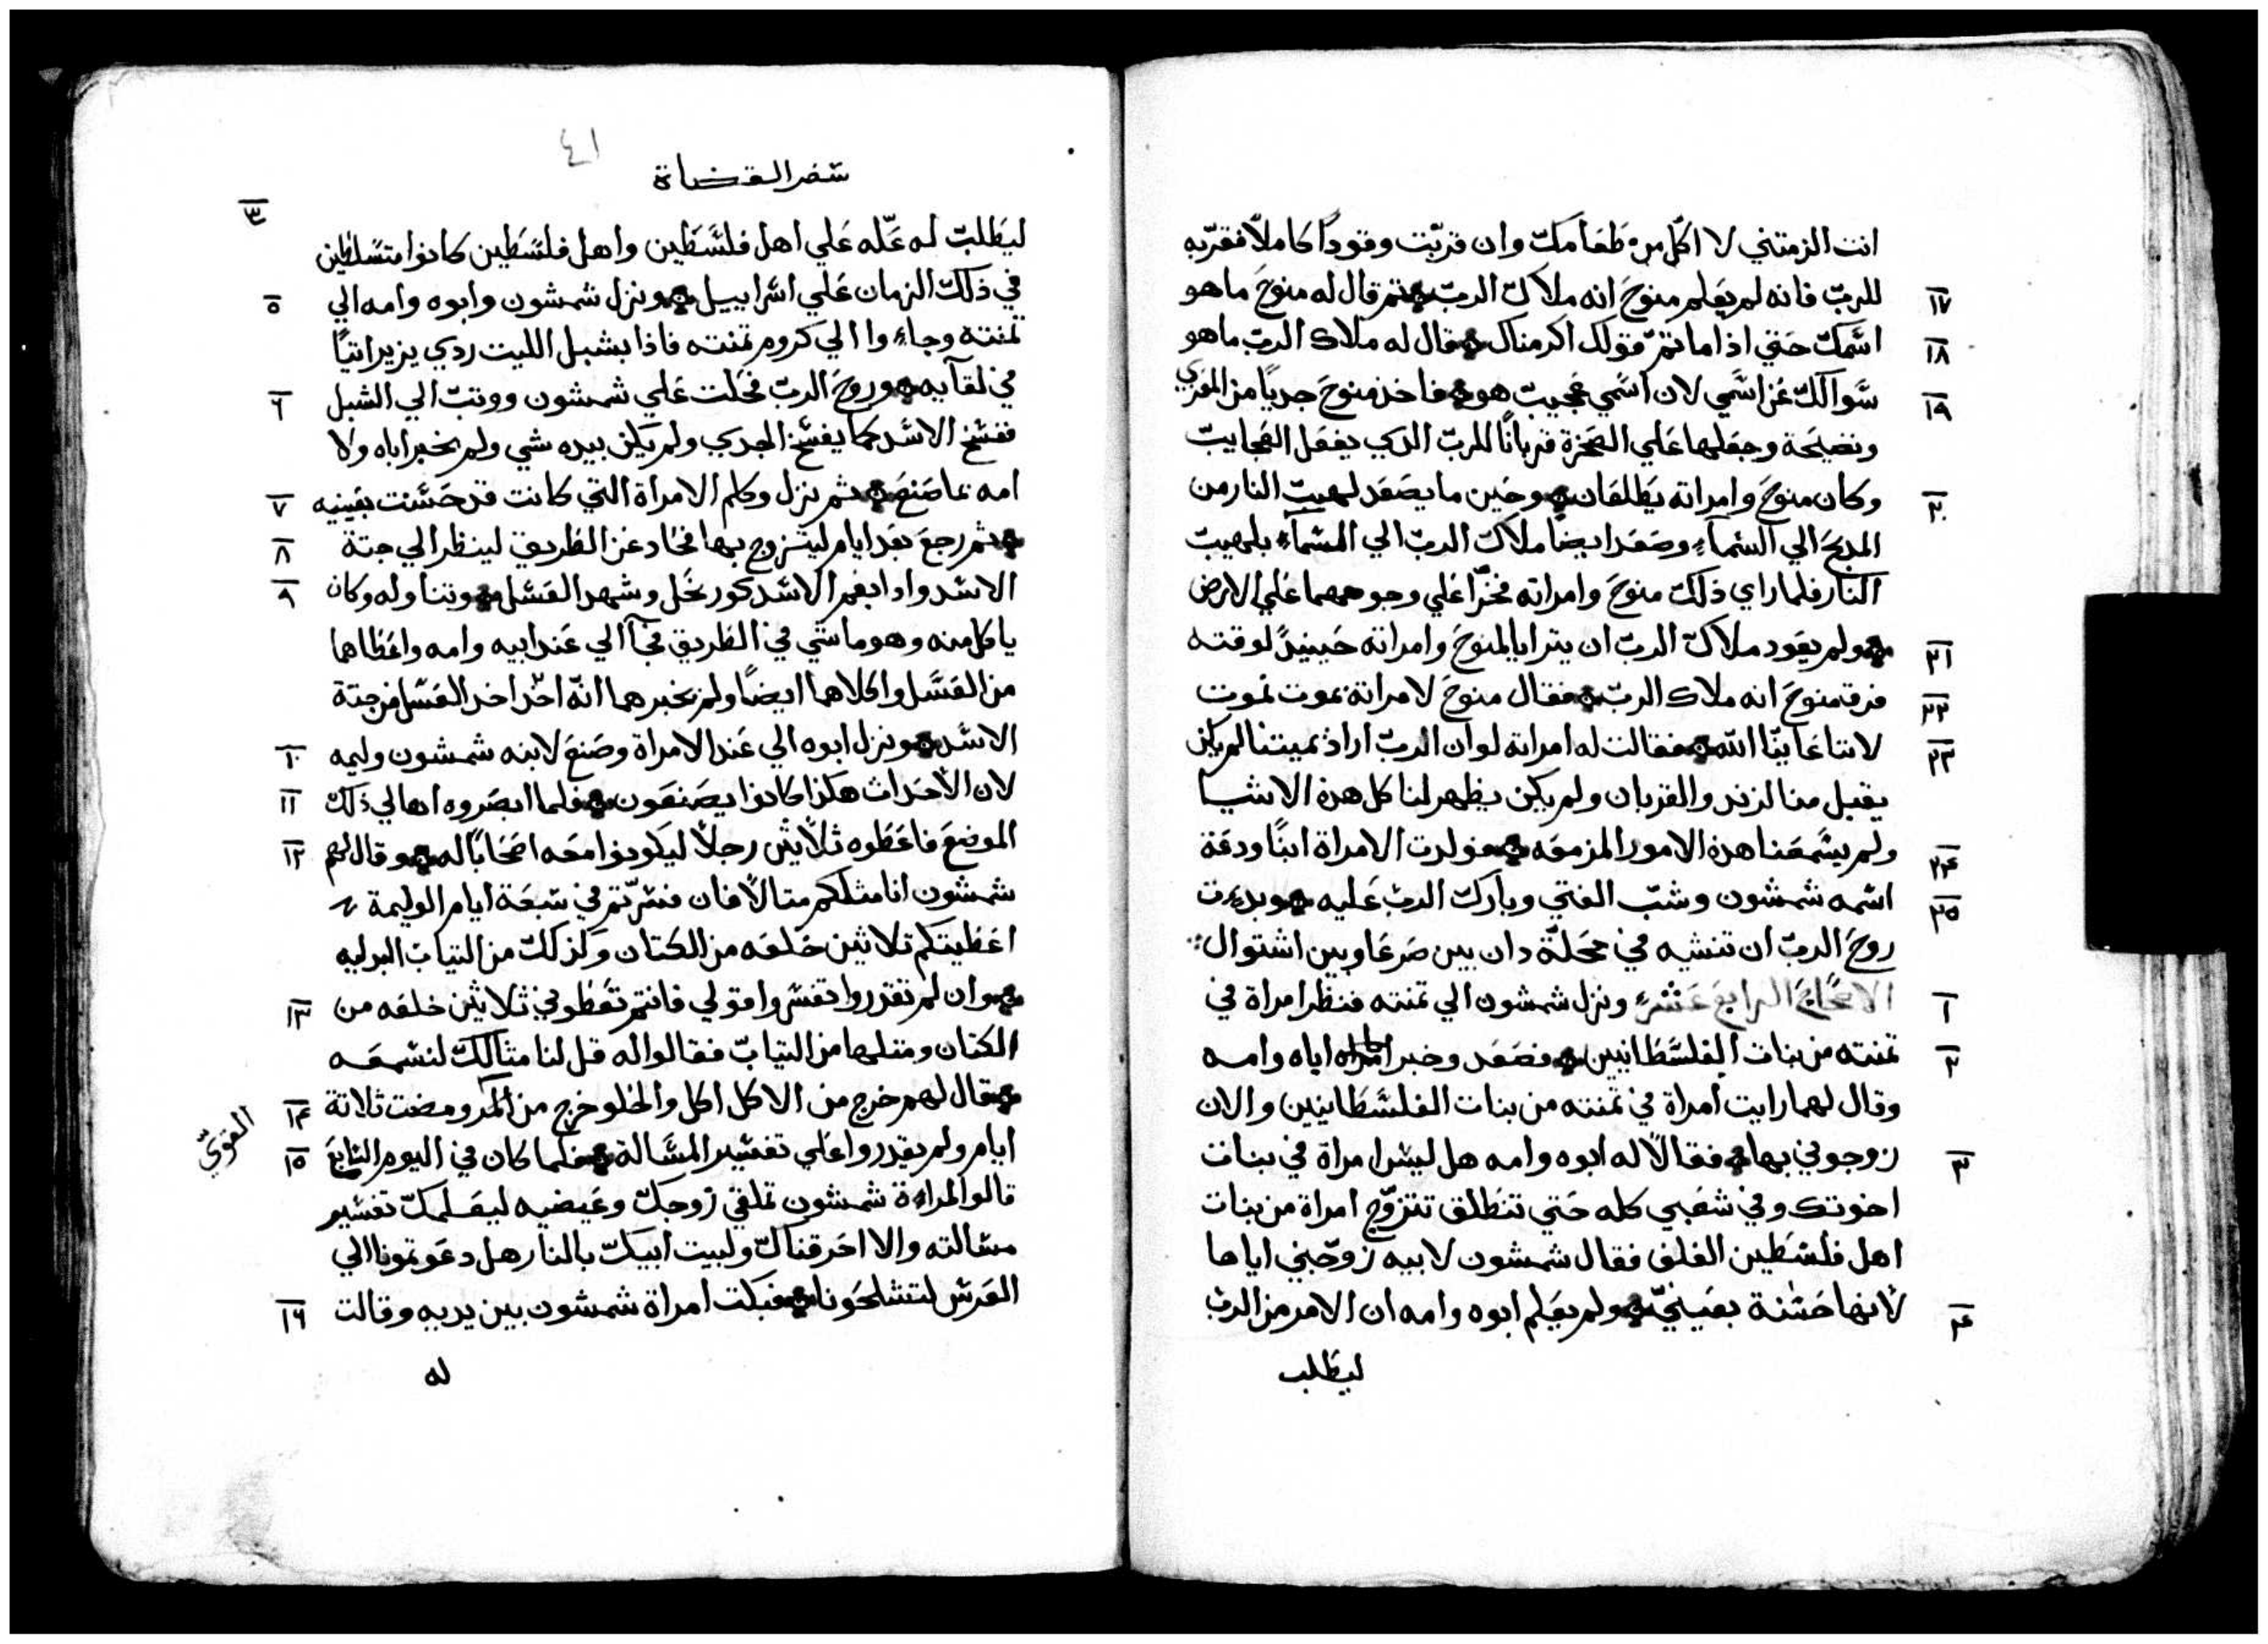 انت الزمتني لا اكل من طعامك وان قربت وقودًا كاملًا فقربه
للربّ فانه لم يعلم منوح انه ملاك الربّ ثم قال له منوح ما هو
١٧
اسمك حتي اذا ما تمّ قولك اكرمناك فقال له ملاك الربّ ما هو
١٨
سوالك عن اسمي لان اسمي عجيب هو فاخذ منوح جديًا من المعزي
١٩
ونضيحة وجعلها علي الصخرة قربانًا للربّ الدي يفعل العجايب
وكان منوح وامراته يطلعان وحين ما يصعد لهيب النار من
٢٠
المدبح الي السماء وصعد ايضًا ملاك الربّ الي السماء بلهيب
النار فلما راي ذلك منوح وامراته فخرّا علي وجوههما علي الارض
ولم يعود ملاك الربّ ان يترايا لمنوح وامراته حينيدً لوقته
٢١
فرق منوح انه ملاك الربّ فقال منوح لامراته نموت نموت
٢٢
لاننا عاينّا الله فقالت له امراته لو ان الربّ اراد نميتنا لم يكن
٢٣
يقبل منا لزند والقربان ولم يكن يظهر لنا كل هدة الاشيا
ولم يسمعنا هدة الامور المزمعه فولدت الامراة ابنًا ودعة
٢٤
اسمه شمشون وشبّ الفتي وبارك الربّ عليه وبدءت
٢٥
روح الربّ ان تنشيه في محلّة دان بين صرعا وبين اشتوال
الاصحاح الرابع عشر ونزل شمشون الي تمنته فنظر امراة في
١
تمنته من بنات الفلسطانيين فصعد وخبر اباه وامه
٢
وقال لهما رايت امراة في تمنته من بنات الفلسطانيين والان
زوجوني بها فقالا له ابوه وامه هل ليس امراة في بنات
٣
اخوتك وفي شعبي كله حتي تنطلق تتزوّج امراة من بنات
اهل فلسطين الغلف فقال شمشون لابيه زوجني اياها
لانها حسنة بعينيّ ولم يعلم ابوه وامه ان الامر من الربّ
٤
ليطلب
٤١
سفر القضاة
٣
ليطلب له علّه علي اهل فلسطين واهل فلسطين كانوا متسلطين
في ذلك الزمان علي اسراييل ونزل شمشون وابوه وامه الي
٥
تمنته وجاءوا الي كروم تمنته فاذا بشبل الليت ردي يزير اتيًا
في لقآيه وروح الربّ فحلت علي شمشون ووتب الي الشبل
٦
ففسخ الاسد كما يفسخ الجدي ولم يكن بيده شي ولم يخبر اباه ولا
امه بما صنع ثم نزل وكلم الامراة التي كانت قد حسنت بعينيه
٧
ثم رجع بعد ايام ليتزوج بها فحاد عن الطريق لينظر الي جتة
٨
الاسد وادا بفم الاسد كور نحل وشهد العسل وتناوله وكان
٩
ياكل منه وهو ماشي في الطريق فجآ الي عند ابيه وامه واعطاهما
من العسل واكلاهما ايضًا ولم يخبرهما انّه اخد العسل من جتة
الاسد ونزل ابوه الي عند الامراة وصنع لابنه شمشون وليمه
١٠
لان الأحداث هكذا كانوا يصنعون فلما ابصروه اهالي ذلك
١١
الموضع فاعطوه ثلاثين رجلًا ليكونوا معه اصحابًا له وقال لهم
١٢
شمشون انا مثلكم متالًا فان فسرّتم في سبعة ايام الوليمة
اعطيتكم تلاثين خلعه من الكتان وكذلك من التياب البرليه
وان لم تقدروا تفسروا قولي فانتم تعطوني ثلاثين خلعه من
١٣
الكتان ومتلها من التياب فقالوا له قل لنا متالك لنسمعه
فقال لهم خرج من الاكل اكل والحلو خرج من المر ومضت ثلاثة
١٤
القويّ
ايام ولم يقدروا علي تفسير المسالة فلما كان في اليوم السابع
١٥
قالوا لمراءة شمشون تملقي زوجك وغيضيه ليعلمك تفسير
مسالته والا احرقناك ولبيت ابيك بالنار هل دعوتمونا الي
العرس لتشلحونا فبكت امراة شمشون بين يديه وقالت
١٦
له